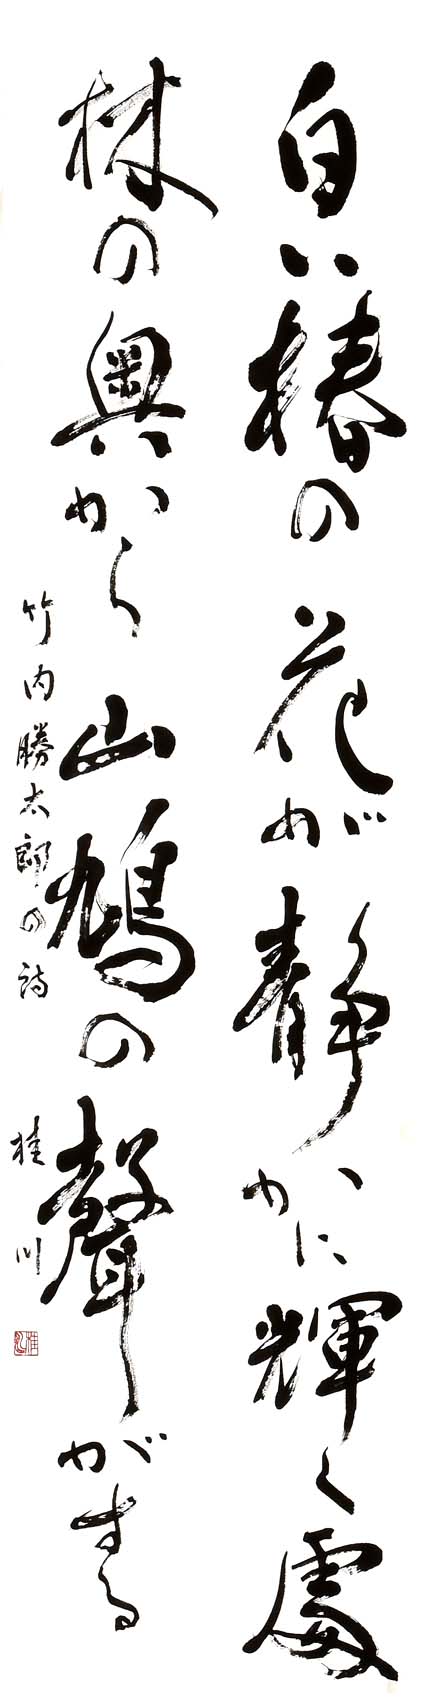 白い椿の花が静かに輝く處
林の奥から山鳩の聲がする
竹内勝太郎の詩 桂川